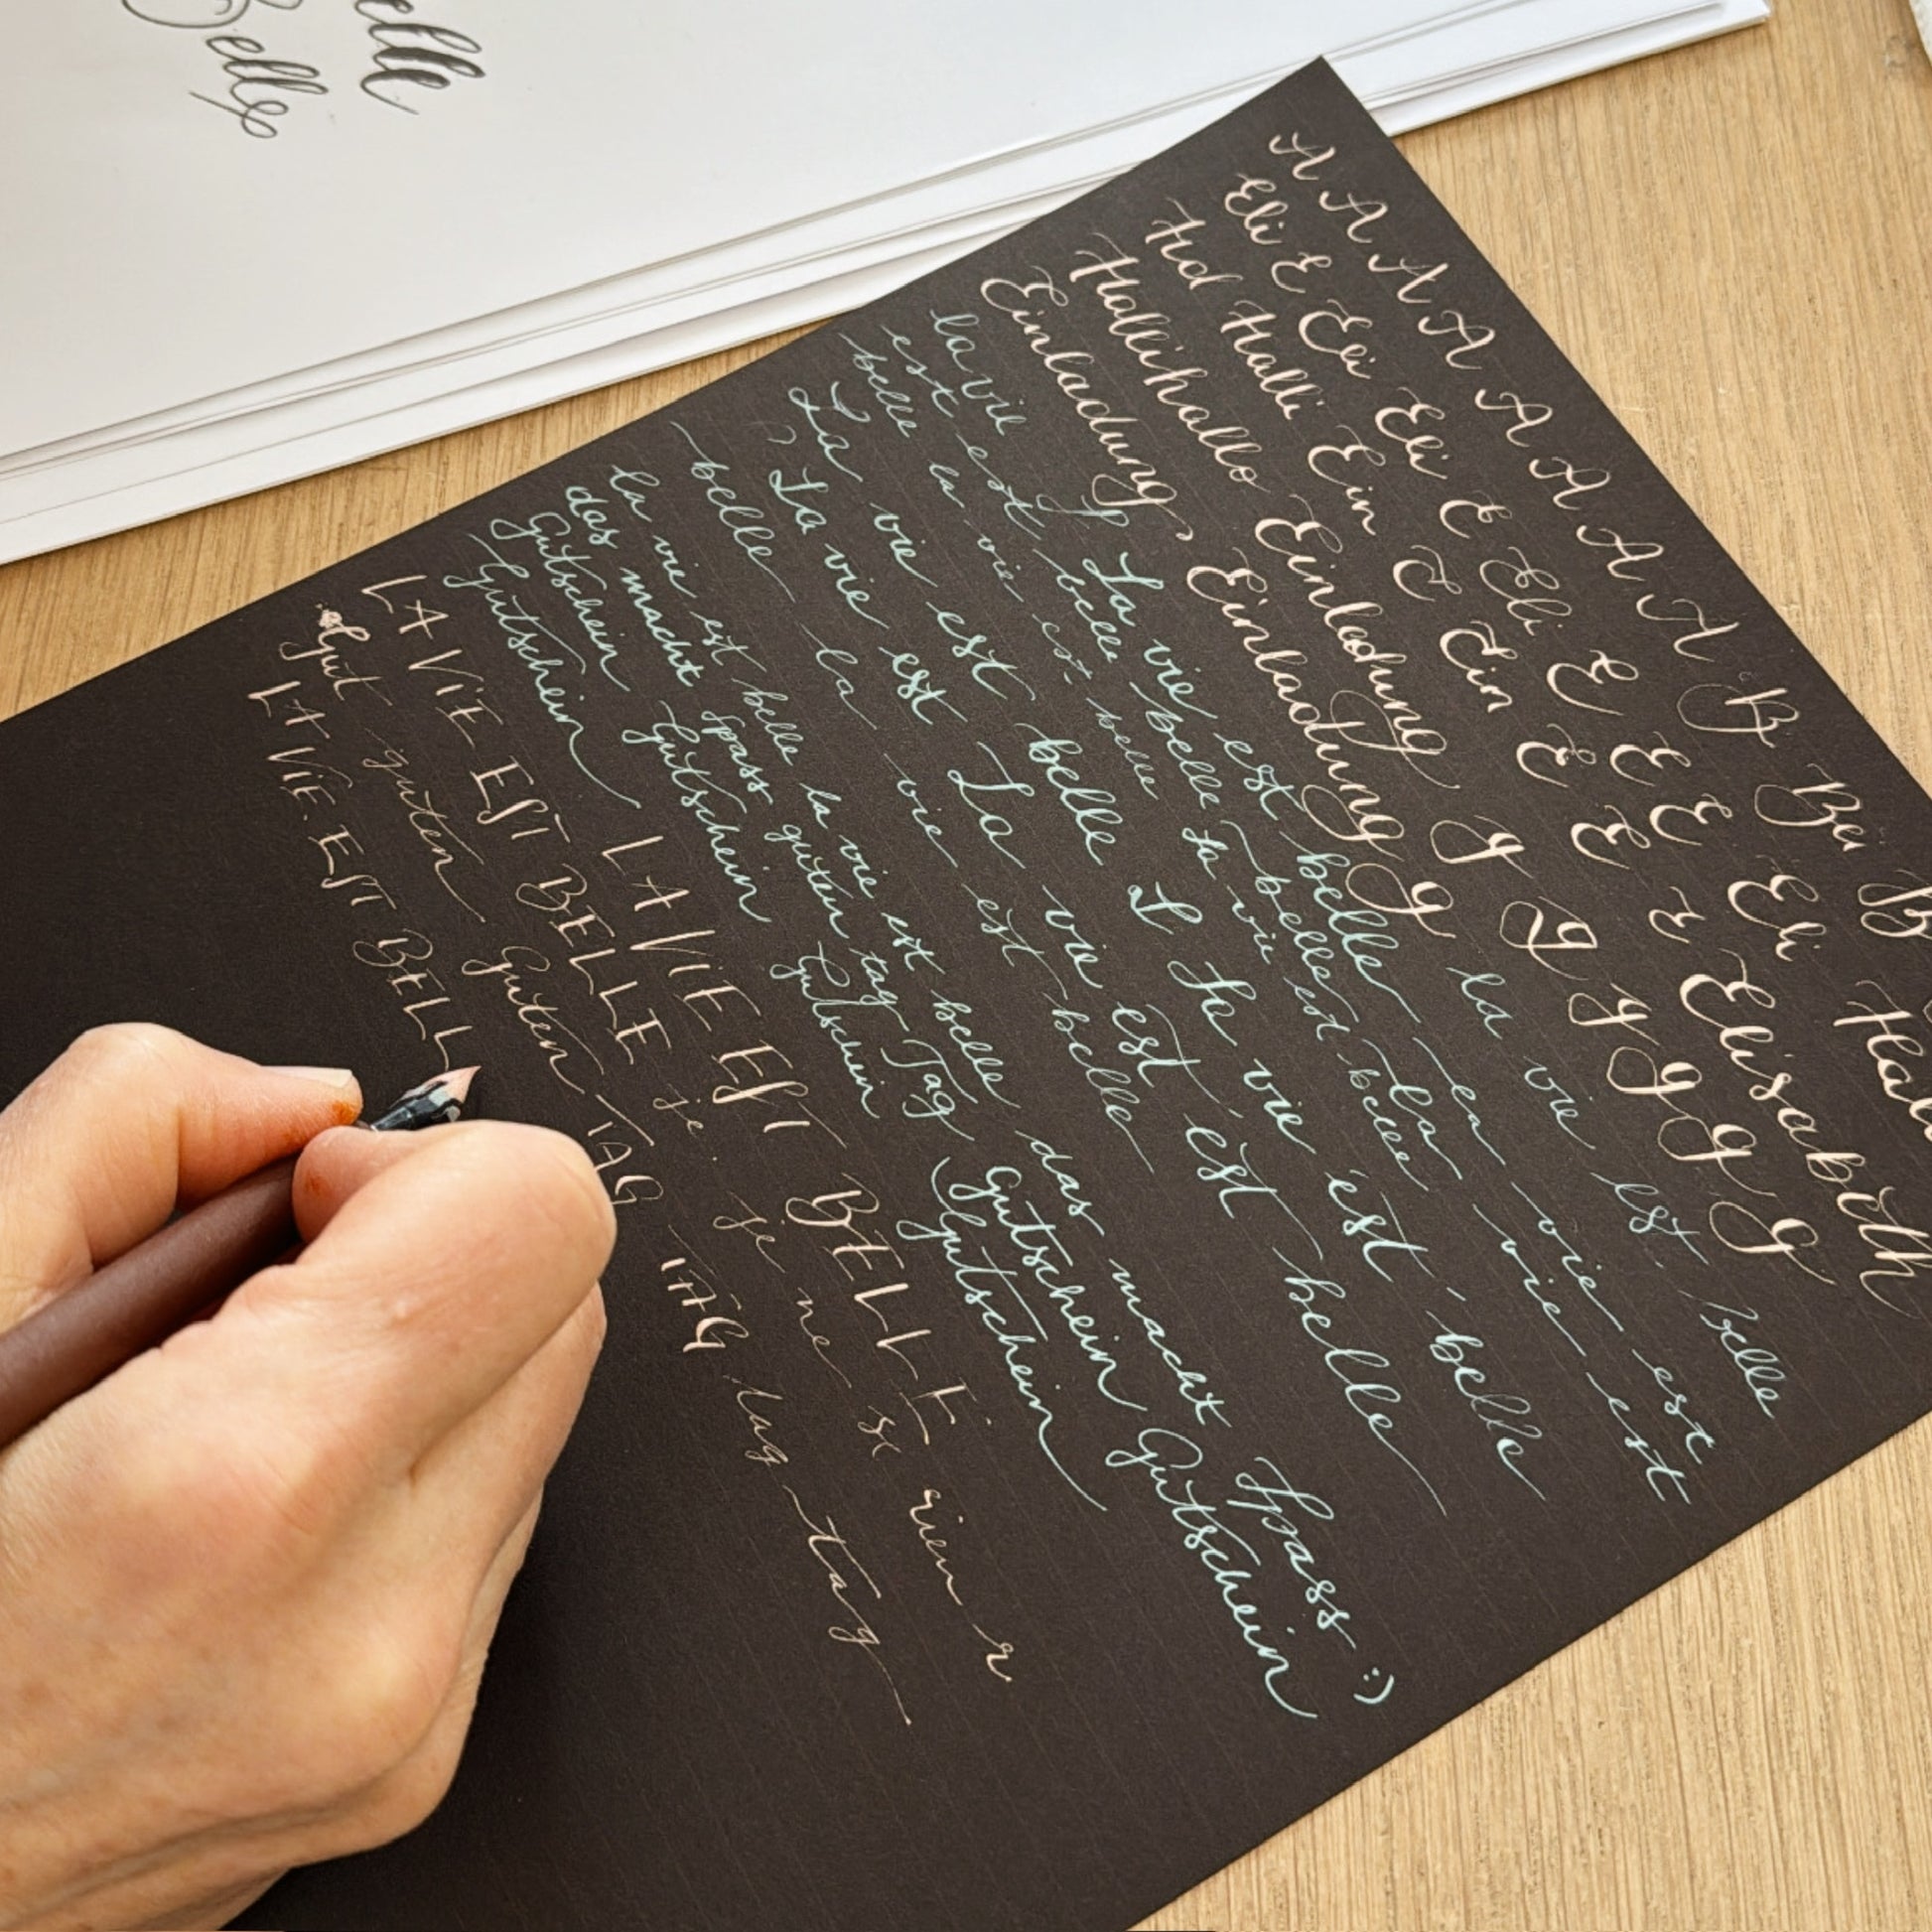 elle
Belle
A A A A A A A A B Bei B
Eli E Eli Eli E Eli E E E Eli Hal
Hal Halli Ein E Ein E E Elisabeth
Hallihallo Einladung g g y g g g
Einladung Einladung g
la vie La vie est belle la vie est belle
est est belle belle belle la vie est
belle la vie est belle La vie est belle vie est
La vie est belle L La vie est belle
La vie est La vie est est belle
belle la vie est belle
la vie est belle la vie est belle das macht Spass :)
das macht Spass guten tag Tag Gutschein Gutschein
Gutschein Gutschein Gutschein Gutschein
Gutschein
LA ViE EST BELLE je je ne se rien r
LA ViE EST BELLE
Gut guten Guten TAG TAG tag tag
LA ViE EST BELL